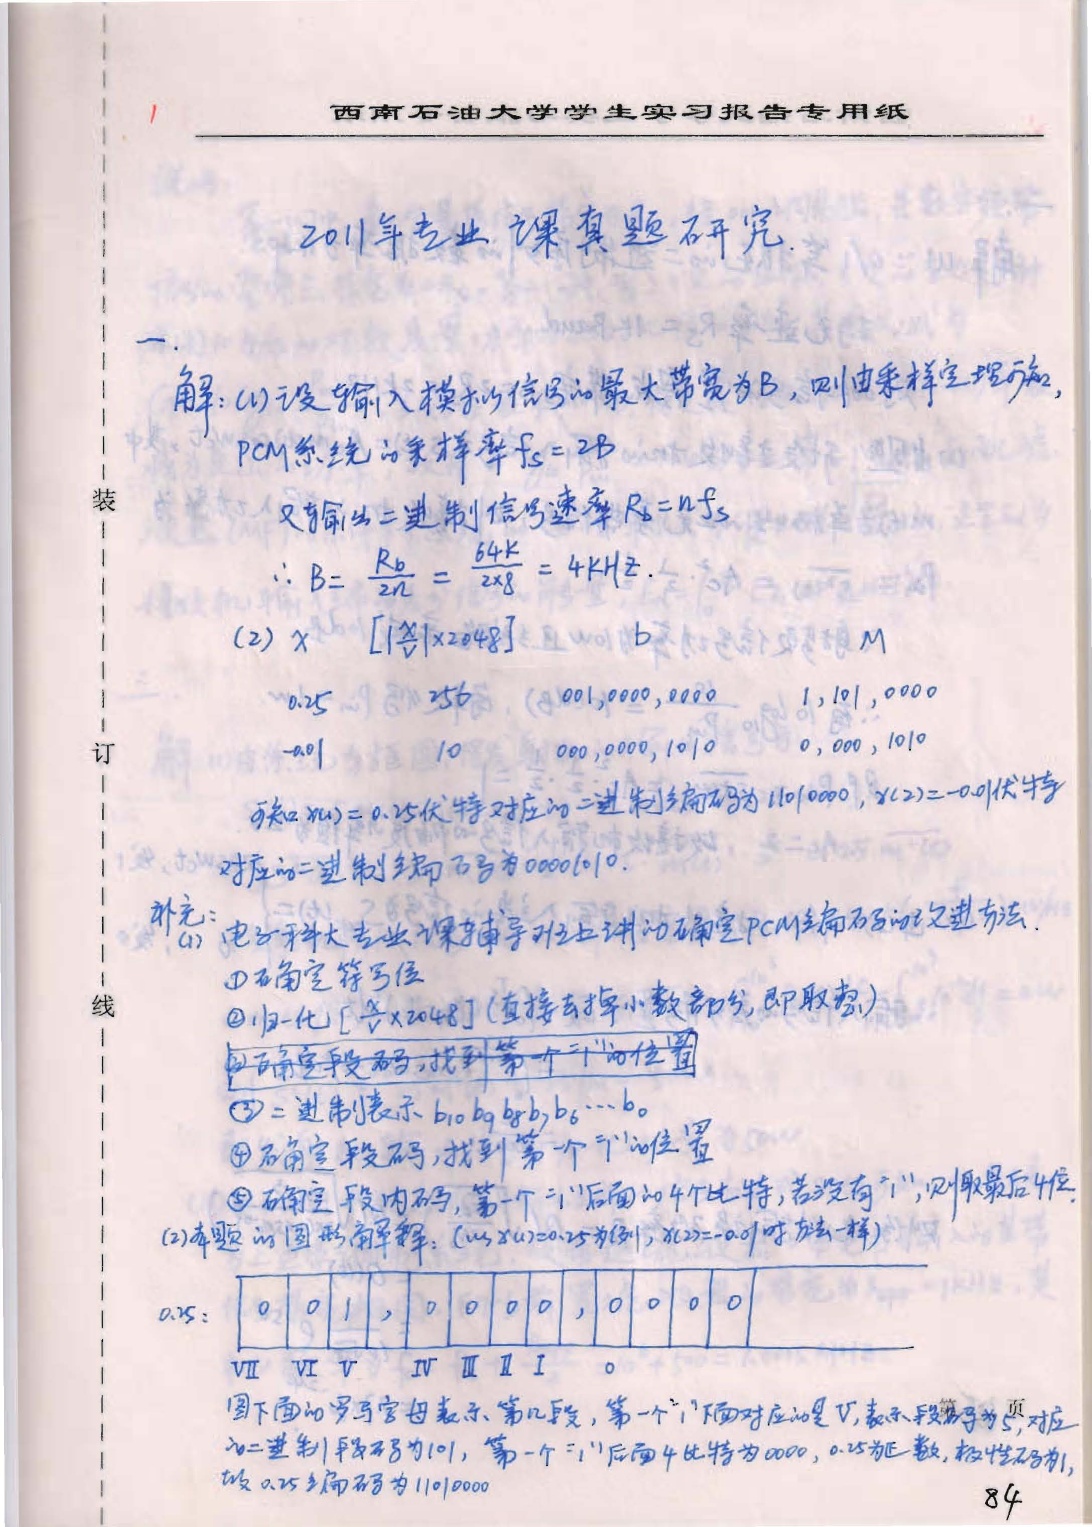 1
西南石油大学学生实习报告专用纸
2011年专业课真题研究.
一.
解:(1)设输入模拟信号的最大带宽为B,则由采样定理可知,
PCM系统的采样率fs=2B
又输出二进制信号速率Rb=nfs
∴ B= Rb/2n = 64K/2×8 = 4KHz.
(2) x [|x/△|×2048] b M
0.25 256 001,0000,0000 1,101,0000
-0.01 10 000,0000,1010 0,000,1010
可知x(1)=0.25伏特对应的二进制编码为11010000,x(2)=-0.01伏特
对应的二进制编码为00001010.
补充:
(1)电子科大专业课辅导班上讲的确定PCM编码的改进方法.
①确定符号位
②归一化[x/△×2048](直接去掉小数部分,即取整)
②确定段码,找到第一个"1"的位置
③二进制表示b10b9b8b7b6…b0
④确定段码,找到第一个"1"的位置
⑤确定段内码,第一个"1"后面的4个比特,若没有"1",则取最后4位.
(2)本题的图形解释:(以x(1)=0.25为例,x(2)=-0.01时方法一样)
0.25: 0 0 1 , 0 0 0 0 , 0 0 0 0
Ⅶ Ⅵ Ⅴ Ⅳ Ⅲ Ⅱ Ⅰ 0
图下面的罗马字母表示第几段,第一个"1"下面对应的是Ⅴ,表示段码号为5,对应
的二进制段码为101,第一个"1"后面4比特为0000,0.25为正数,极性码为1,
故0.25编码为11010000
第 页
84
装
订
线